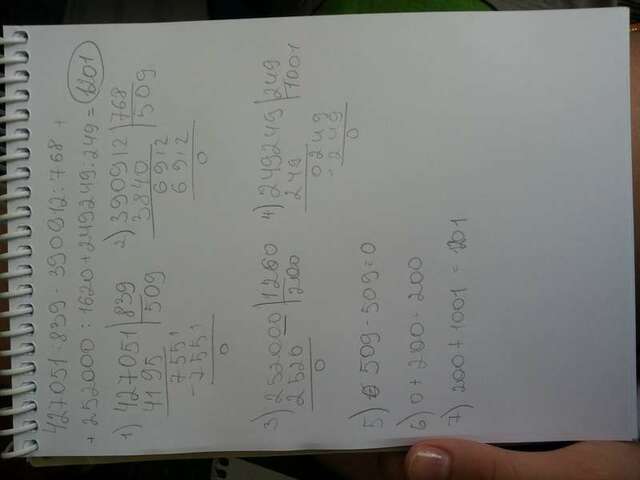 427051:839-390912:768+
+252000:1620+249249:249=1201
1) 427051 | 839
4195 | 509
7551
-7551
0
2) 390912 | 768
3840 | 509
6912
6912
0
3) 252000 | 1260
2520 | 200
0
4) 249249 | 249
249 | 1001
0249
-249
0
5) 509-509=0
6) 0+200=200
7) 200+1001=1201